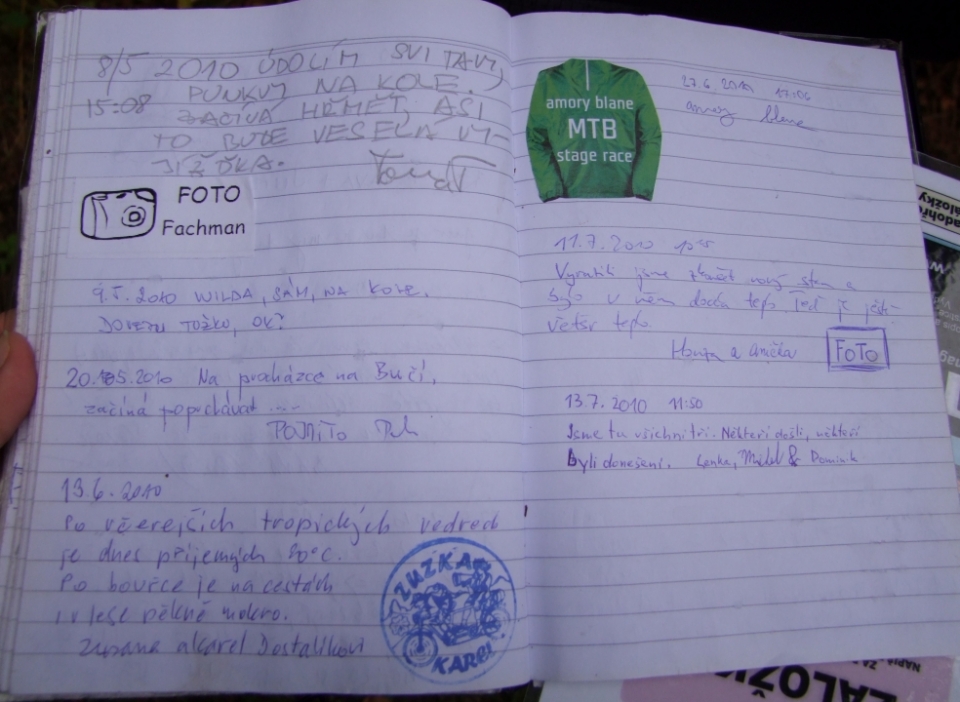 8/5 2010 ÚDOLÍM SVITAVY,
PUNKVY NA KOLE.
15:08 ZAČÍNÁ HŘMĚT, ASI
TO BUDE VESELÁ VY-
JÍŽĎKA.
FOTO
Fachman
9.5. 2010 WILDA, SÁM, NA KOLE.
DOVEZU TOŽKO, OK?
20.5.2010 Na procházce na Bučí,
začíná popichávat ....
POJMITO
13.6.2010
Po včerejších tropických vedrech
je dnes příjemných 20°C.
Po bouřce je na cestách
i v lese pěkně mokro.
Zuzana a Karel Dostalíkovi
ZUZKA
KAREL
amory blane
MTB
stage race
27.6 2010 17:06
amory blane
11.7.2010
Vyrazili jsme nový stan a
bylo v něm docela teplo. Teď je ještě
větší teplo.
Honza a Anička
FOTO
13.7.2010 11:50
Jsme tu všichni tři. Někteří došli, někteří
byli doneseni. Lenka, Michal & Dominik
ZÁLOŽK